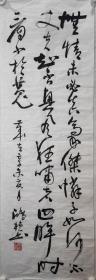 無情未必真豪傑憐子如何不
丈夫知否興風狂嘯者回眸時
看小於菟